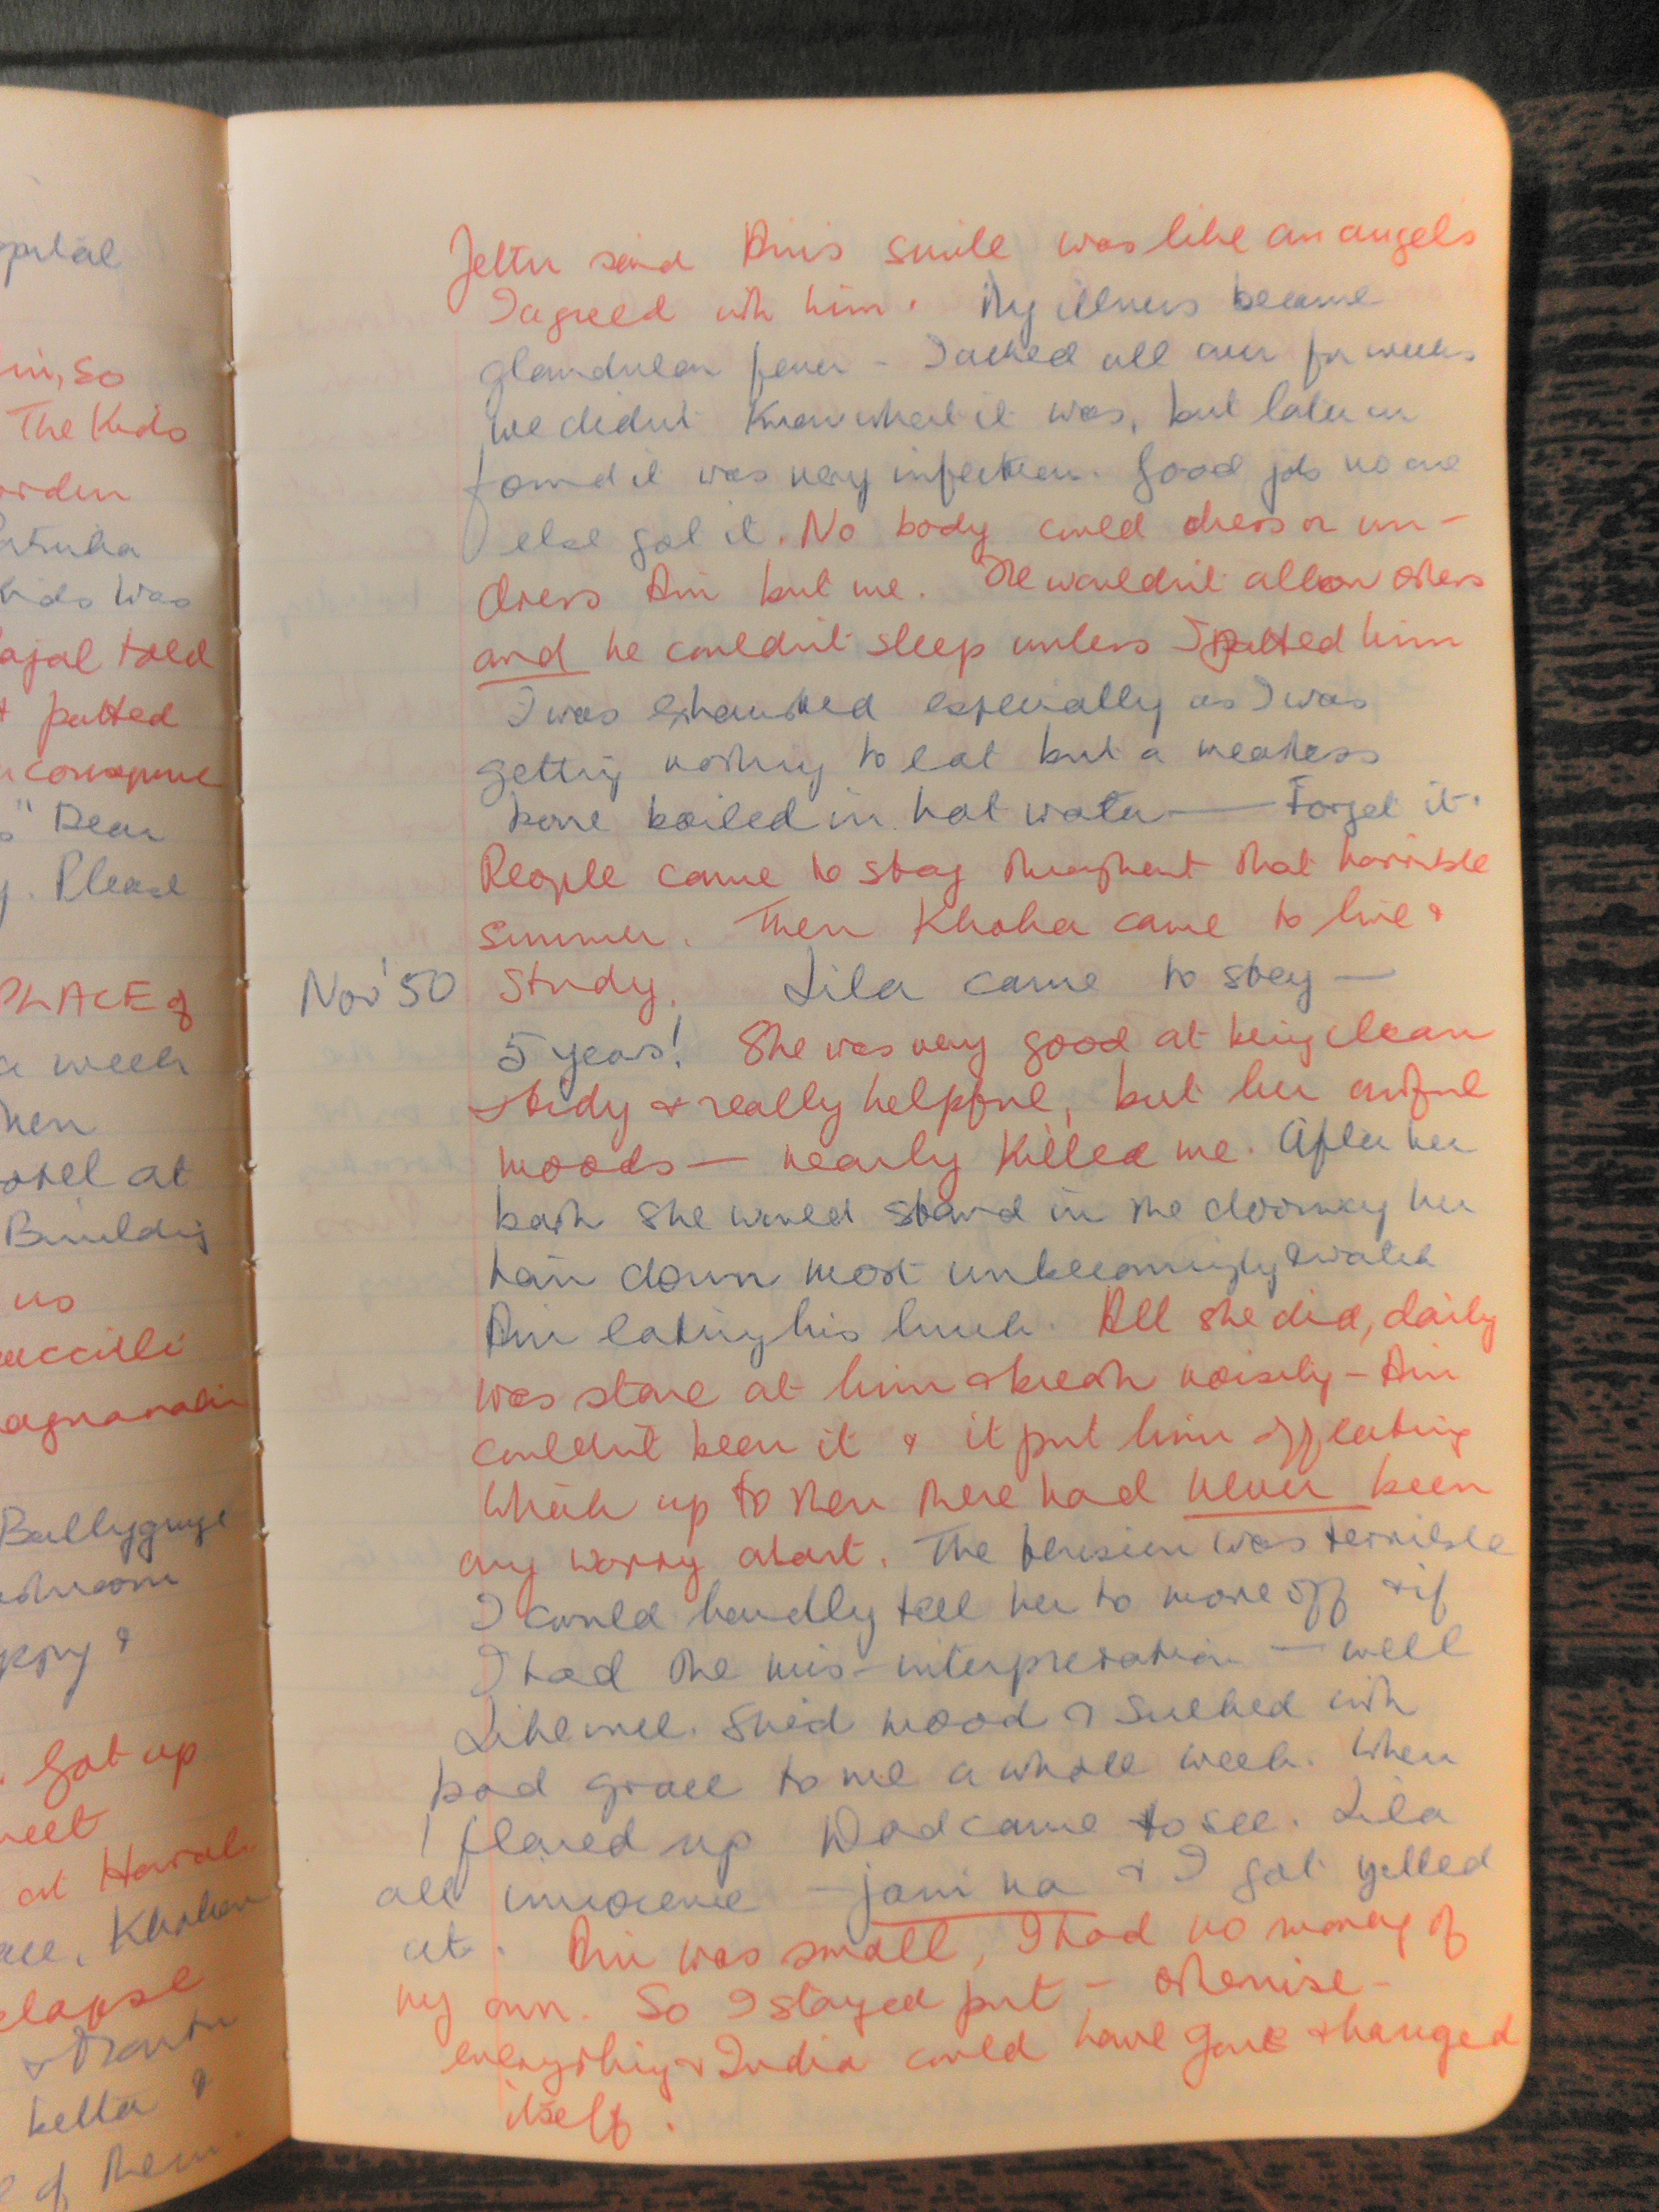 pital
in, so
The Kids
orden
ids was
ajal told
t patted
" Dear
y. Please
PLACE of
a week
hen
otel at
Building
us
agnanadir
Ballygunge
ppy &
. Got up
at Howrah
elapse
ketta &
of them.
Jettu said Ani's smile was like an angels
I agreed with him. My illness became
glandular fever - I ached all over for weeks
We didn't know what it was, but later on
found it was very infectious. Good job no one
else got it. No body could dress or un-
dress Ani but me. He wouldn't allow others
and he couldn't sleep unless I patted him
I was exhausted especially as I was
getting nothing to eat but a meatless
bone boiled in hot water — Forget it.
People came to stay throughout that horrible
summer. Then Khoka came to live &
Nov '50 Study. Lila came to stay —
5 years! She was very good at being clean
& tidy & really helpful, but her awful
moods — nearly killed me. After her
bath she would stand in the doorway her
hair down most unbecomingly & watch
Ani eating his lunch. All she did, daily
was stare at him & breath noisily - Ani
couldn't bear it & it put him off eating
which up to then there had never been
any worry about. The tension was terrible
I could hardly tell her to move off & if
I had the mis-interpretation — well
Likewell. She'd mood & sulked with
bad grace to me a whole week. When
I flared up Dad came to see. Lila
all innocence - jani na & I got yelled
at. Ani was small, I had no money of
my own. So I stayed put - otherwise -
everything & India could have gone & hanged
itself.